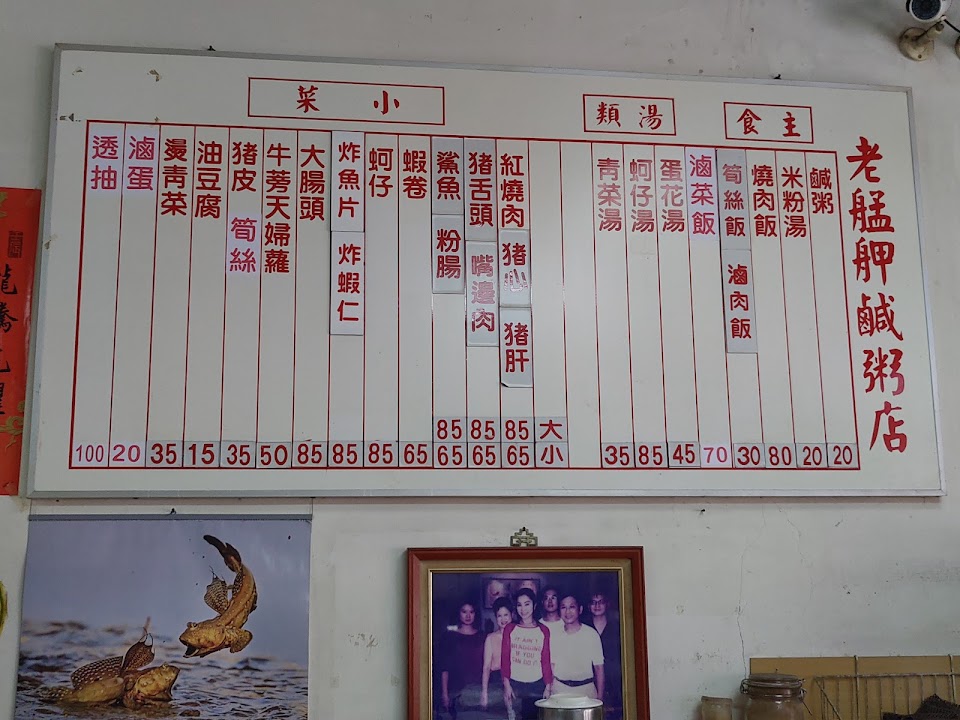 老艋舺鹹粥店
主食
鹹粥 20
米粉湯 20
燒肉飯 80
筍絲飯 滷肉飯 30
滷菜飯 70
湯類
蛋花湯 45
蚵仔湯 85
青菜湯 35
小菜
大 小
紅燒肉 豬心 豬肝 85 65
豬舌頭 嘴邊肉 85 65
鯊魚 粉腸 85 65
蝦卷 65
蚵仔 85
炸魚片 炸蝦仁 85
大腸頭 85
牛蒡天婦蘿 50
豬皮 筍絲 35
油豆腐 15
燙青菜 35
滷蛋 20
透抽 100
龍騰
IT AIN'T
BRAGGING
IF YOU
CAN DO IT